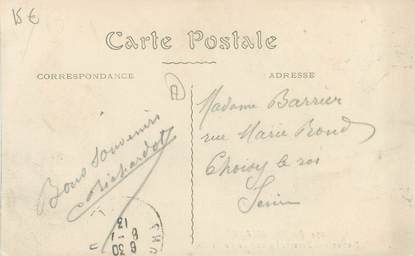 15 €
Carte Postale
CORRESPONDANCE
ADRESSE
Bons Souvenirs
Richardot
Madame Barrier
rue Marie
Choisy le roi
Seine
6 30
8 - 1
13